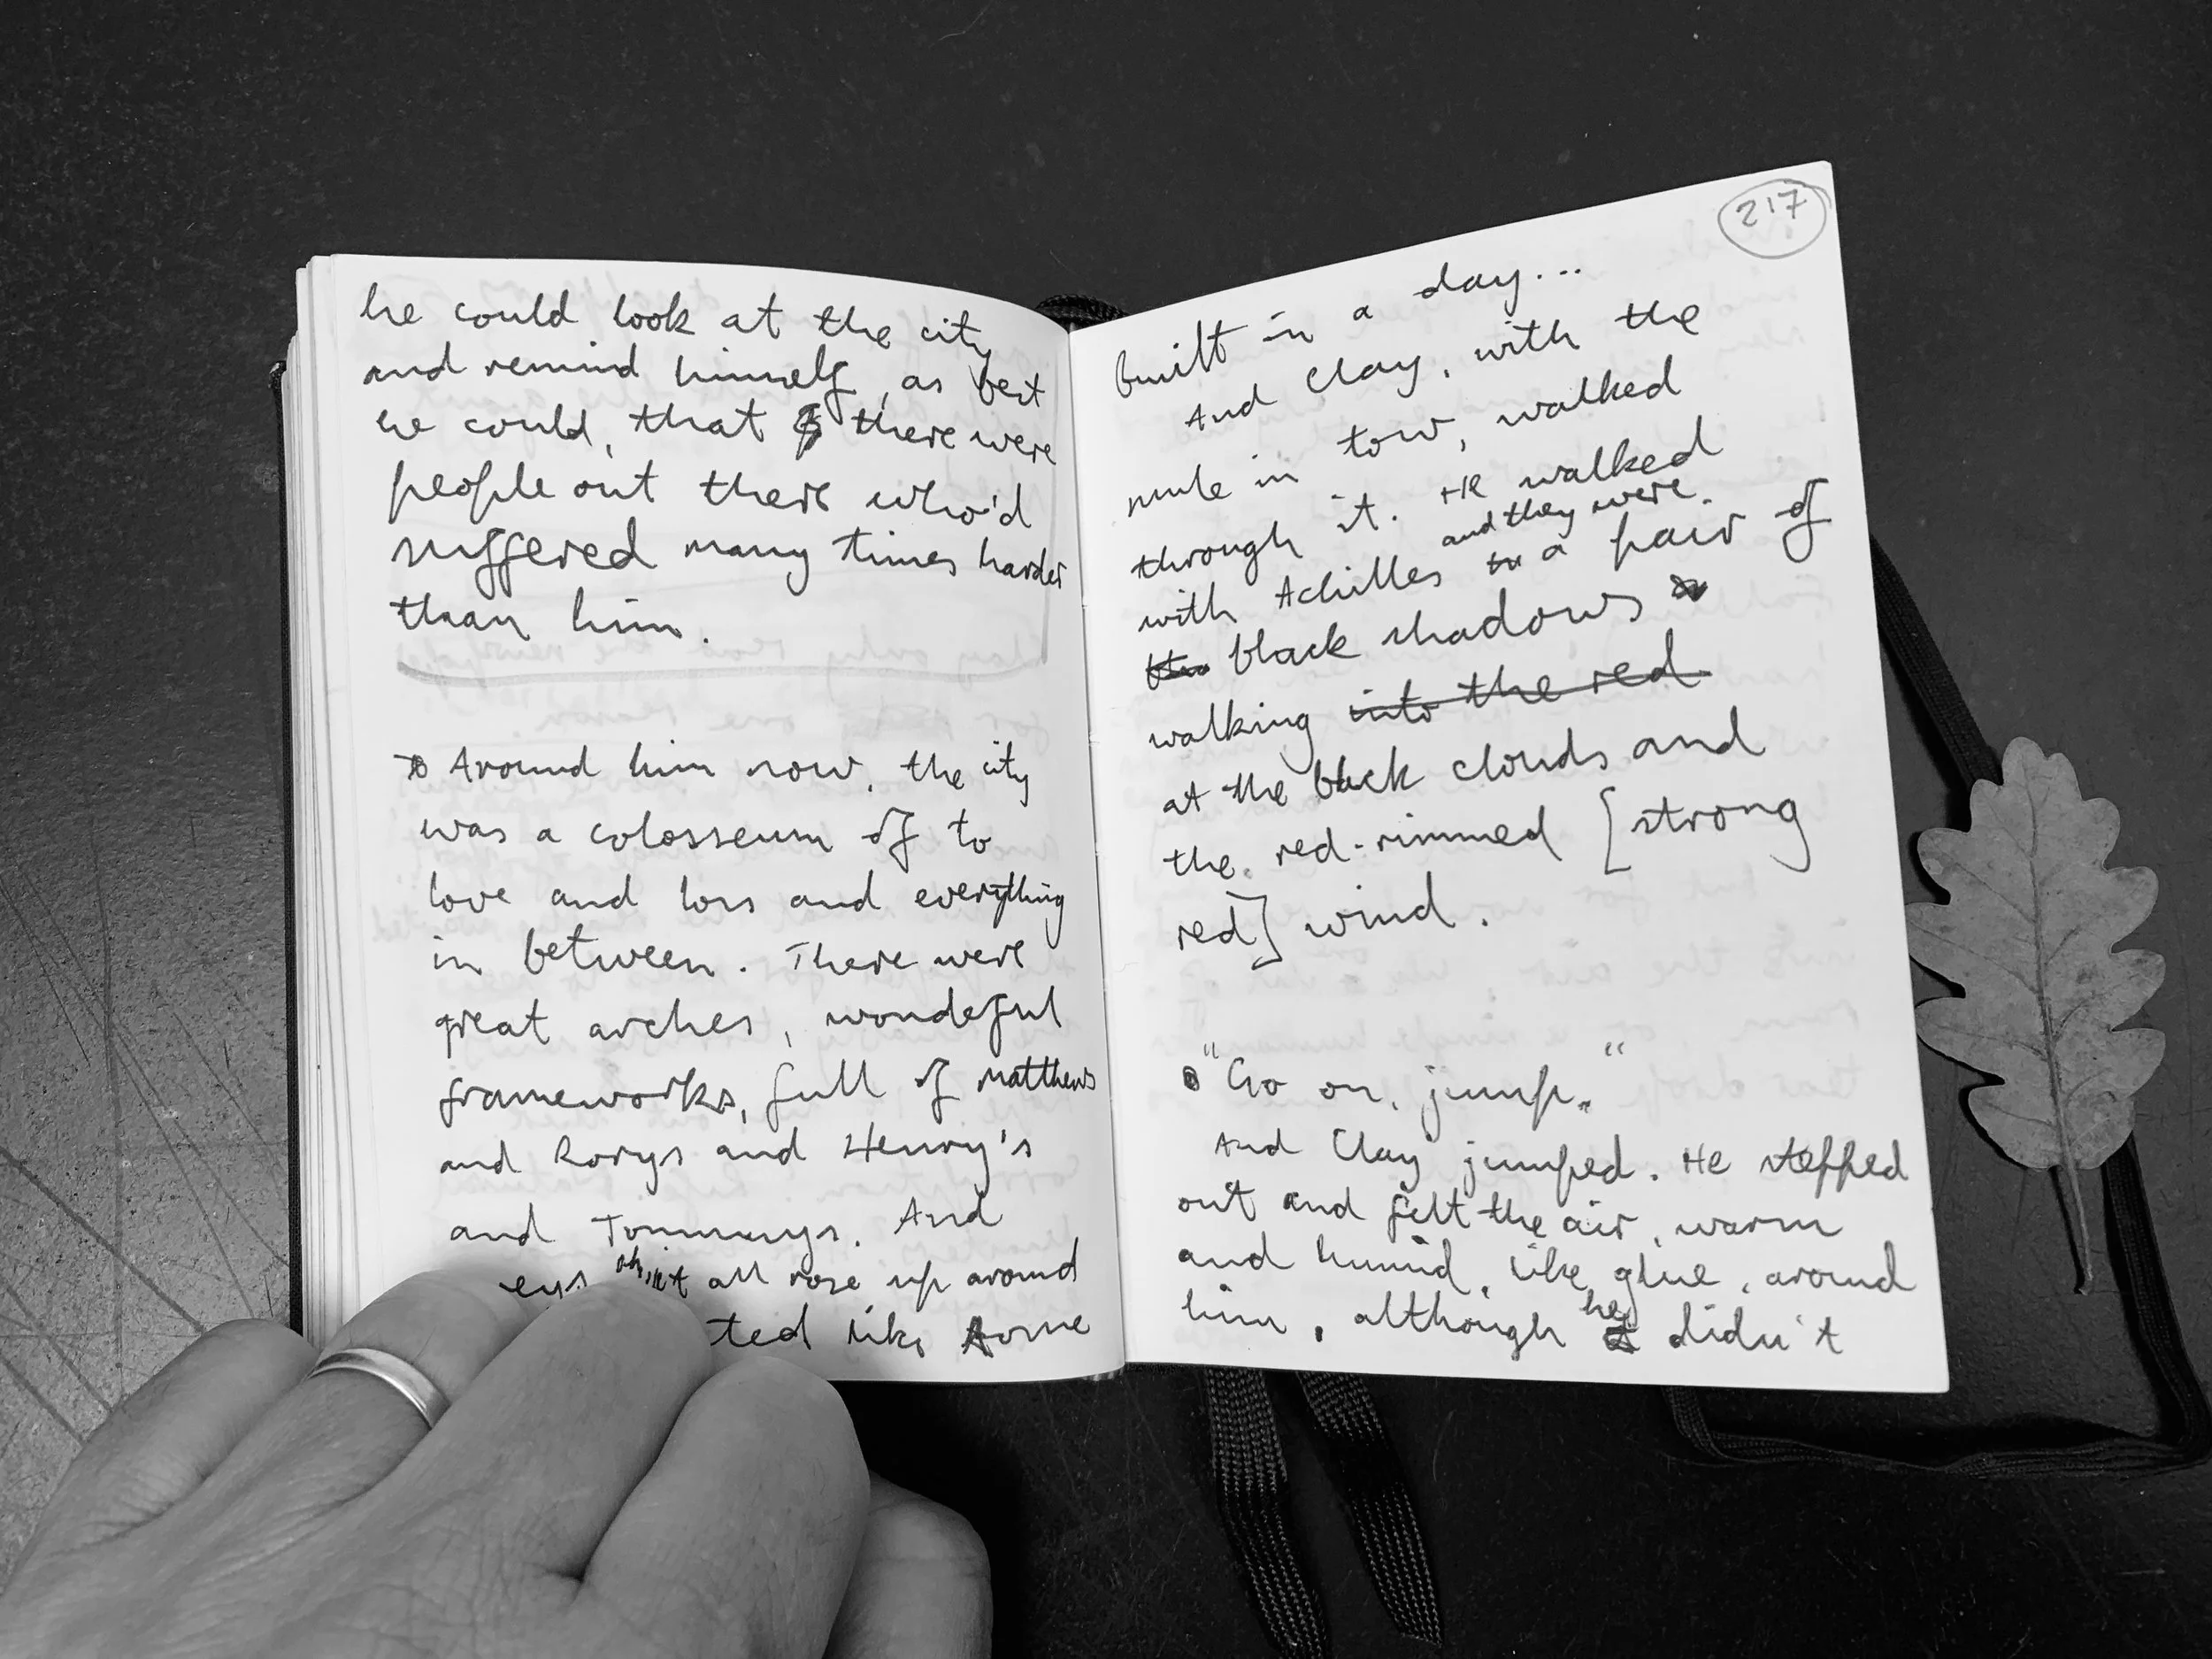 he could look at the city
and remind himself, as best
he could, that there were
people out there who'd
suffered many times harder
than him.
Around him now, the city
was a colosseum of to
love and loss and everything
in between. There were
great arches, wondeful
frameworks, full of Matthews
and Rorys and Henry's
and Tommys. And
eys all rose up around
ted like Rome
217
built in a day...
And Clay, with the
mule in tow, walked
through it. He walked
and they were
with Achilles a pair of
black shadows
walking into the red
at the black clouds and
the red-rimmed [strong
red] wind.
"Go on, jump."
And Clay jumped. He stepped
out and felt the air, warm
and humid, like glue, around
he
him, although didn't